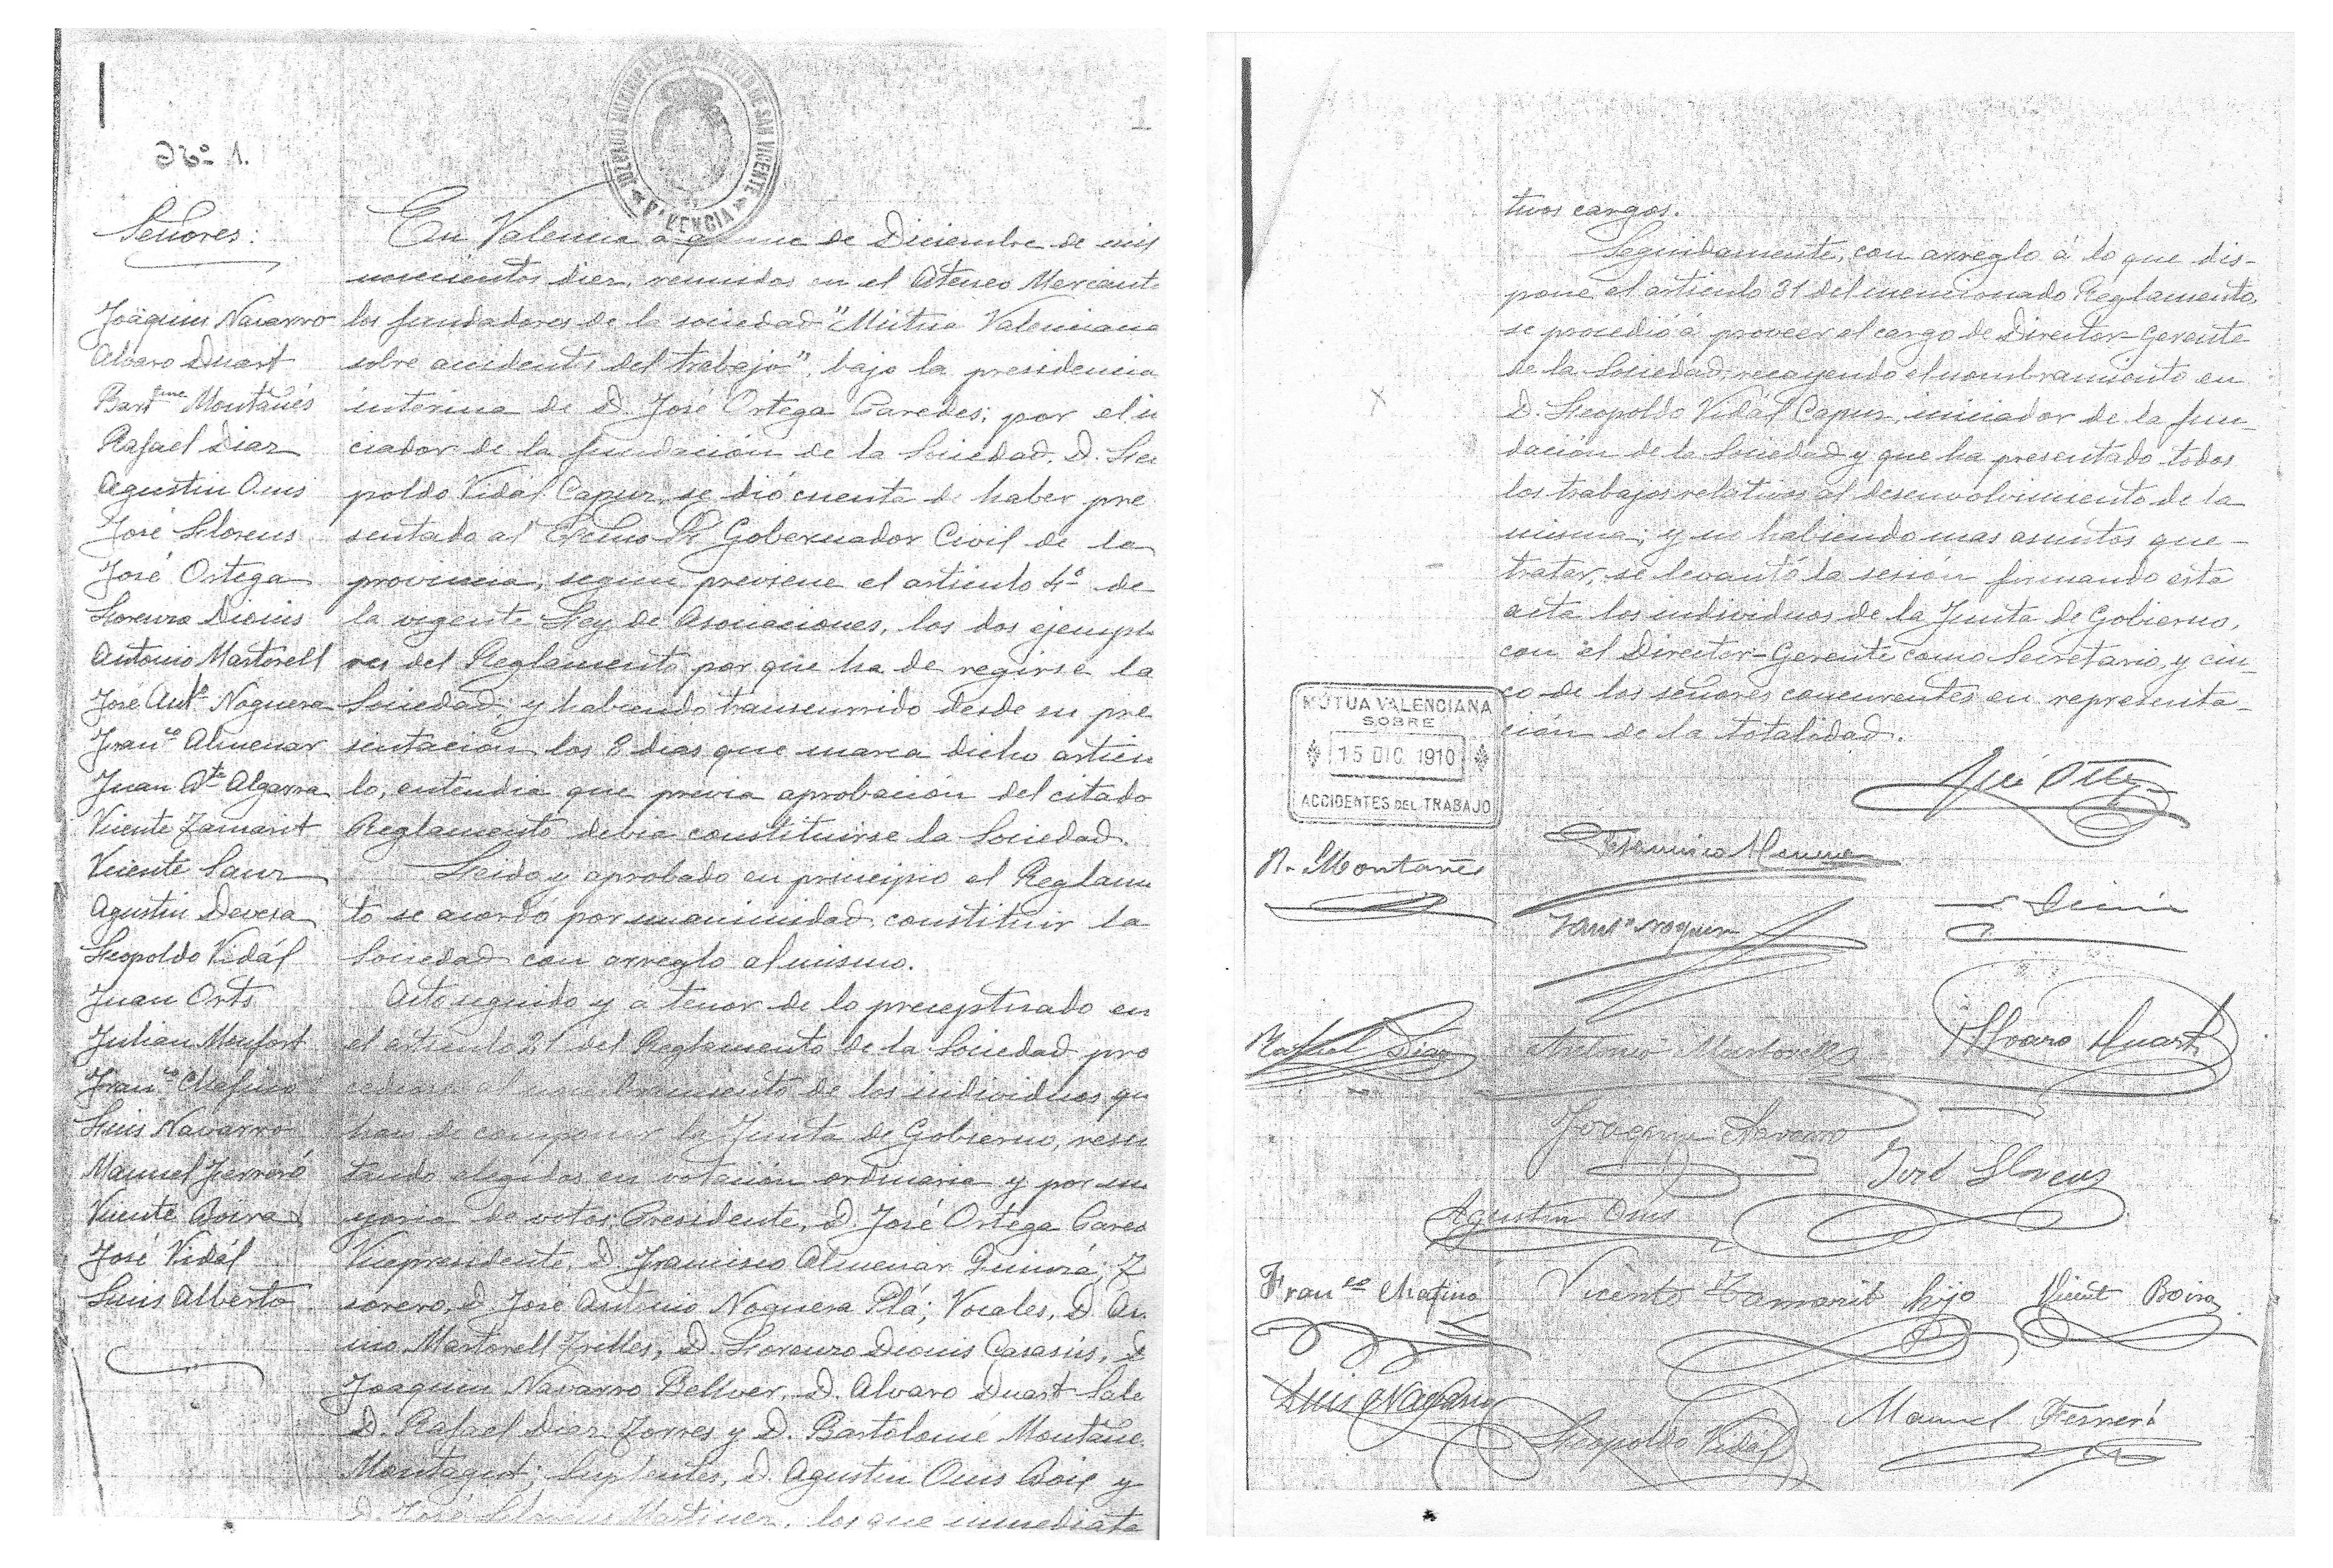 1
Nº 1.
JUZGADO MUNICIPAL DEL DISTRITO DE SAN VICENTE
VALENCIA
Señores:
Joaquin Navarro
Alvaro Duart
Bartme Montañés
Rafael Diaz
Agustin Onis
José Llorens
José Ortega
Lorenzo Dionis
Antonio Martorell
José Antº Noguera
Franco Almenar
Juan Bta Algarra
Vicente Tamarit
Vicente Sanz
Agustin Devesa
Leopoldo Vidál
Juan Orts
Julian Monfort
Franco Chafino
Luis Navarro
Manuel Ferreró
Vicente Boira
José Vidál
Luis Alberto
En Valencia a quince de Diciembre de mil
novecientos diez, reunidos en el Ateneo Mercanti
los fundadores de la sociedad "Mútua Valenciana
sobre accidentes del trabajo", bajo la presidencia
interina de D. José Ortega Paredes; por el in
ciador de la fundación de la Sociedad, D. Leo
poldo Vidál Capuz, se dió cuenta de haber pre
sentado al Excmo Sr Gobernador Civil de la
provincia, segun previene el articulo 4º de
la vigente Ley de Asociaciones, los dos ejempla
res del Reglamento por que ha de regirse la
Sociedad; y habiendo transcurrido desde su pre
sentación los 8 dias que marca dicho articu
lo, entendia que previa aprobación del citado
Reglamento debia constituirse la Sociedad.
Leido y aprobado en principio el Reglamen
to se acordó por unanimidad, constituir la
Sociedad con arreglo al mismo.
Acto seguido y á tenor de lo preceptuado en
el articulo 21 del Reglamento de la Sociedad pro
cediose al nombramiento de los individuos qu
han de componer la Junta de Gobierno, resul
tando elegidos en votación ordinaria y por ma
yoria de votos, Presidente, D. José Ortega Pared
Vicepresidente, D. Francisco Almenar Quinzá; T
sorero, D. José Antonio Noguera Plá; Vocales, D. An
nio Martorell Trilles, D. Lorenzo Dionis Casasús, D
Joaquin Navarro Bellver, D. Alvaro Duart Sale
D. Rafael Diaz Torres y D. Bartolomé Montañe
Montagut; Suplentes, D. Agustin Onis Boix y
D. José Llorens Martinez, los que inmediata
tivos cargos.
Seguidamente, con arreglo á lo que dis-
pone el articulo 31 del mencionado Reglamento,
se procedió á proveer el cargo de Director-Gerente
de la Sociedad, recayendo el nombramiento en
D. Leopoldo Vidál Capuz, iniciador de la fun-
dación de la Sociedad y que ha presentado todos
los trabajos relativos al desenvolvimiento de la
misma; y no habiendo mas asuntos que-
tratar, se levantó la sesión firmando esta
acta los individuos de la Junta de Gobierno,
con el Director-Gerente como Secretario, y cin-
co de los señores concurrentes en representa-
ción de la totalidad.
MÚTUA VALENCIANA
SOBRE
15 DIC. 1910
ACCIDENTES DEL TRABAJO
José Ortega
B. Montañés
Francisco Almenar
J. Antº Noguera
L. Dionis
Rafael Diaz
Antonio Martorell
Alvaro Duart
Joaquin Navarro
José Llorens
Agustin Onis
Franco Chafino
Vicente Tamarit hijo
Vicente Boira
Luis Navarro
Leopoldo Vidál
Manuel Ferreró